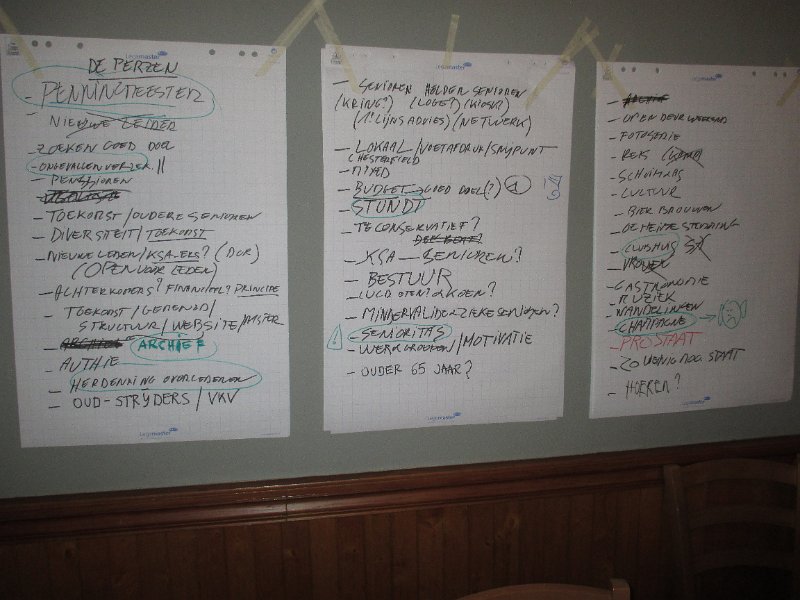 Legamaster
DE PERZEN
- PENNINGMEESTER
NIEUWE LEIDER
- ZOEKEN GOED DOEL
- ONGEVALLENVERZEK.
- PENSIOEN
- TOEKOMST / OUDERE SENIOREN
- DIVERSITEIT / TOEKOMST
- NIEUWE LEDEN / KSA-ERS? (DCR)
(OPEN VOOR LEDEN)
- ACHTERKOMERS? FINANCIEEL? PRINCIPE
- TOEKOMST / GEMEND /
STRUCTUUR / WEBSITE /
- ARCHIEF ARCHIEF
- AUTHIE
- HERDENKING OVERLEDENEN
- OUD-STRYDERS / VKV
Legamaster
Legamaster
- SENIOREN HELPEN SENIOREN
(KRING?) (LOGE?) (KIOSK?)
(1e LIJNS ADVIES) (NETWERK)
- LOKAAL / VOETAFDRUK / SNYPUNT
CHESTERFIELD
- MIXED
- BUDGET - GOED DOEL (?) 1
- STUNDT
- TE CONSERVATIEF?
- KSA - SENIOREN?
- BESTUUR
- MINDERVALIDE / ZIEKE SENIOREN?
! - SENIORITAS
- WERKGROEPEN / MOTIVATIE
- OUDER 65 JAAR?
Legamaster
Legamaster
- ARCHIEF
- OPEN DEUR WEEKEND
- FOTOGRAFIE
- REIS
- SCHUIMWAS
- CULTUUR
- BIER BROUWEN
- GEHEIME STEMMING
- CLUBHUIS
- VROUWEN
- GASTRONOMIE
- MUZIEK
- WANDELINGEN
- CHAMPAGNE
- PROSTAAT
- ZO WEINIG NOG STAAT
- HOEREN?
Legamaster